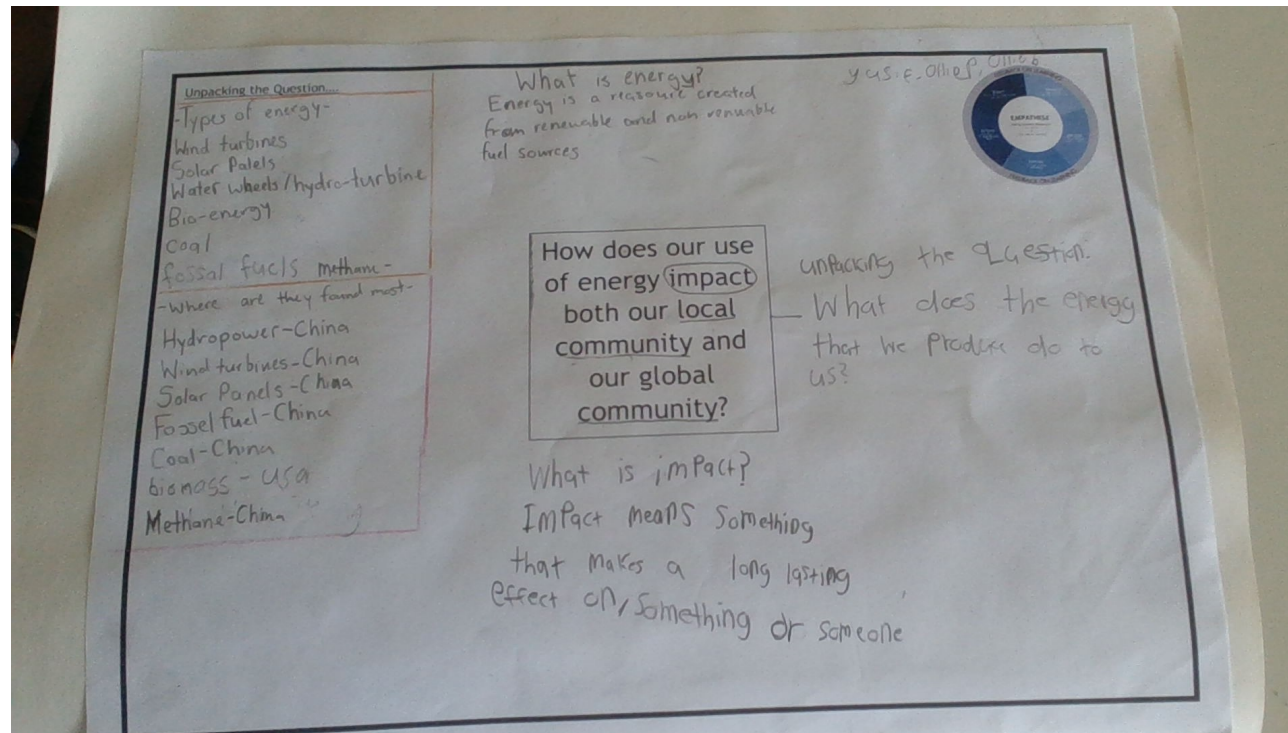 Unpacking the Question....
-Types of energy-
Wind turbines
Solar Palels
Water wheels/hydro-turbine
Bio-energy
Coal
fossal fuels methane-
-Where are they found most-
Hydropower-China
Wind turbines-China
Solar Panels-China
Fossel fuel-China
Coal-China
biomass - USA
Methane-China
What is energy?
Energy is a reasource created
from renewable and non renuable
fuel sources
yus.f, Ollie f, Ollie b
EMPATHISE
How does our use
of energy impact
both our local
community and
our global
community?
unpacking the question.
What does the energy
that we produce do to
us?
What is impact?
Impact means something
that makes a long lasting
effect on, something or someone